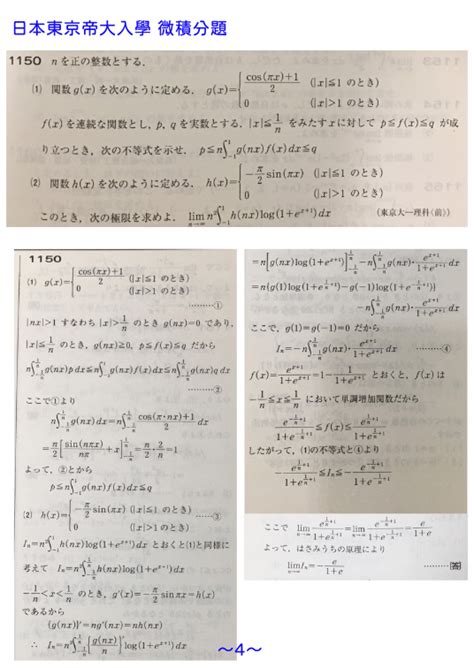 日本東京帝大入學 微積分題
1150 nを正の整数とする.
(1) 関数g(x)を次のように定める. g(x)={ cos(πx)+1 / 2 (|x|≦1 のとき)
0 (|x|>1 のとき)
f(x)を連続な関数とし, p, qを実数とする. |x|≦1/n をみたすxに対して p≦f(x)≦q が成
り立つとき, 次の不等式を示せ. p≦n∫_{-1}^{1} g(nx)f(x)dx≦q
(2) 関数h(x)を次のように定める. h(x)={ -π/2 sin(πx) (|x|≦1 のとき)
0 (|x|>1 のとき)
このとき, 次の極限を求めよ. lim_{n→∞} n²∫_{-1}^{1} h(nx)log(1+e^{x+1})dx (東京大―理科(前))
1150
(1) g(x)={ cos(πx)+1 / 2 (|x|≦1 のとき)
0 (|x|>1 のとき)
………①
|nx|>1 すなわち |x|>1/n のとき g(nx)=0 であり,
|x|≦1/n のとき, g(nx)≧0, p≦f(x)≦q だから
n∫_{-1/n}^{1/n} g(nx)p dx≦n∫_{-1}^{1} g(nx)f(x)dx≦n∫_{-1/n}^{1/n} g(nx)q dx
………②
ここで①より
n∫_{-1/n}^{1/n} g(nx)dx=n∫_{-1/n}^{1/n} cos(π·nx)+1 / 2 dx
=n/2[sin(nπx)/nπ+x]_{-1/n}^{1/n}=n/2·2/n=1
よって, ②とから
p≦n∫_{-1}^{1} g(nx)f(x)dx≦q
(2) h(x)={ -π/2 sin(πx) (|x|≦1 のとき)
0 (|x|>1 のとき)
……③
I_n=n²∫_{-1}^{1} h(nx)log(1+e^{x+1})dx とおくと(1)と同様に
考えて I_n=n²∫_{-1/n}^{1/n} h(nx)log(1+e^{x+1})dx
-1/n<x<1/n のとき, g'(x)=-π/2 sinπx=h(x)
であるから
{g(nx)}'=ng'(nx)=nh(nx)
∴ I_n=n²∫_{-1/n}^{1/n} [g(nx)/n]' log(1+e^{x+1})dx
=n[g(nx)log(1+e^{x+1})]_{-1/n}^{1/n}-n∫_{-1/n}^{1/n} g(nx)·e^{x+1}/1+e^{x+1} dx
=n{g(1)log(1+e^{1/n+1})-g(-1)log(1+e^{-1/n+1})}
-n∫_{-1/n}^{1/n} g(nx)·e^{x+1}/1+e^{x+1} dx
ここで, g(1)=g(-1)=0 だから
I_n=-n∫_{-1/n}^{1/n} g(nx)·e^{x+1}/1+e^{x+1} dx ……④
f(x)=e^{x+1}/1+e^{x+1}=1-1/1+e^{x+1} とおくと, f(x)は
-1/n≦x≦1/n において単調増加関数だから
e^{-1/n+1}/1+e^{-1/n+1}≦f(x)≦e^{1/n+1}/1+e^{1/n+1}
したがって, (1)の不等式と④より
e^{-1/n+1}/1+e^{-1/n+1}≦-I_n≦e^{1/n+1}/1+e^{1/n+1}
ここで lim_{n→∞} e^{1/n+1}/1+e^{1/n+1}=lim_{n→∞} e^{-1/n+1}/1+e^{-1/n+1}=e/1+e
よって, はさみうちの原理により
lim_{n→∞} I_n=-e/1+e ……答
～4～